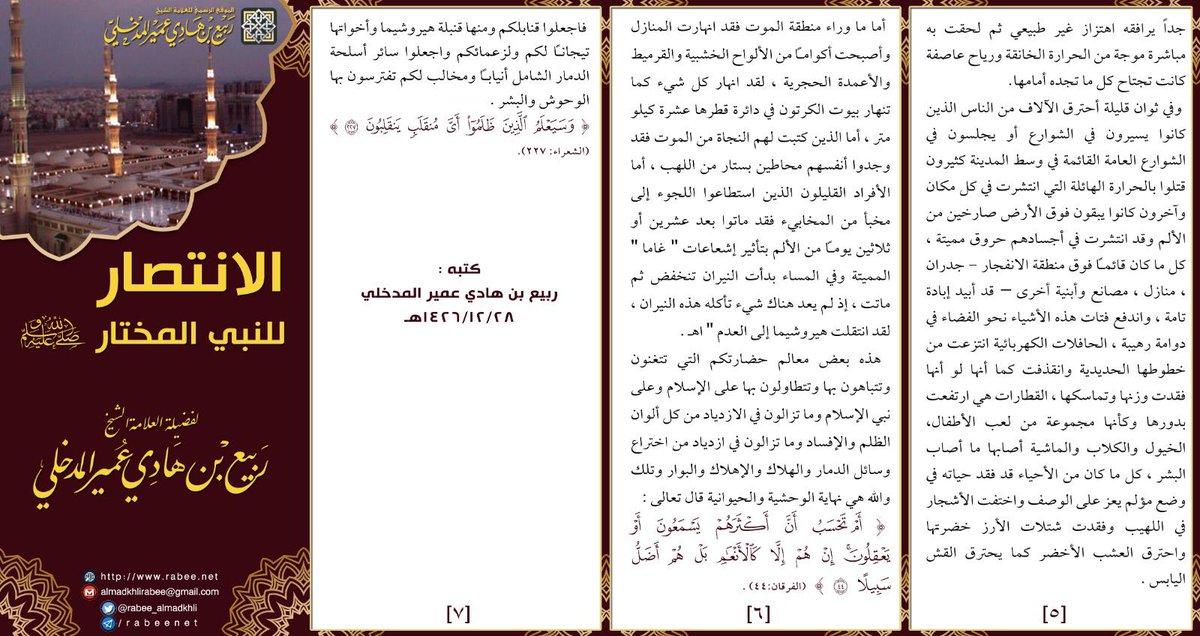 جداً يرافقه اهتزاز غير طبيعي ثم لحقت به
مباشرة موجة من الحرارة الخانقة ورياح عاصفة
كانت تجتاح كل ما تجده أمامها.
وفي ثوان قليلة أحترق الآلاف من الناس الذين
كانوا يسيرون في الشوارع أو يجلسون في
الشوارع العامة القائمة في وسط المدينة كثيرون
قتلوا بالحرارة الهائلة التي انتشرت في كل مكان
وآخرون كانوا يبقون فوق الأرض صارخين من
الألم وقد انتشرت في أجسادهم حروق مميتة ،
كل ما كان قائمًا فوق منطقة الانفجار – جدران
، منازل ، مصانع وأبنية أخرى – قد أبيد إبادة
تامة ، واندفع فتات هذه الأشياء نحو الفضاء في
دوامة رهيبة ، الحافلات الكهربائية انتزعت من
خطوطها الحديدية وانقذفت كما أنها لو أنها
فقدت وزنها وتماسكها ، القطارات هي ارتفعت
بدورها وكأنها مجموعة من لعب الأطفال،
الخيول والكلاب والماشية أصابها ما أصاب
البشر ، كل ما كان من الأحياء قد فقد حياته في
وضع مؤلم يعز على الوصف واختفت الأشجار
في اللهيب وفقدت شتلات الأرز خضرتها
واحترق العشب الأخضر كما يحترق القش
اليابس .
[٥]
أما ما وراء منطقة الموت فقد انهارت المنازل
وأصبحت أكوامًا من الألواح الخشبية والقرميط
والأعمدة الحجرية ، لقد انهار كل شيء كما
تنهار بيوت الكرتون في دائرة قطرها عشرة كيلو
متر ، أما الذين كتبت لهم النجاة من الموت فقد
وجدوا أنفسهم محاطين بستار من اللهب ، أما
الأفراد القليلون الذين استطاعوا اللجوء إلى
مخبأ من المخابيء فقد ماتوا بعد عشرين أو
ثلاثين يومًا من الألم بتأثير إشعاعات " غاما "
المميتة وفي المساء بدأت النيران تنخفض ثم
ماتت ، إذ لم يعد هناك شيء تأكله هذه النيران ،
لقد انتقلت هيروشيما إلى العدم " اهـ .
هذه بعض معالم حضارتكم التي تتغنون
وتتباهون بها وتتطاولون بها على الإسلام وعلى
نبي الإسلام وما تزالون في الازدياد من كل ألوان
الظلم والإفساد وما تزالون في ازدياد من اختراع
وسائل الدمار والهلاك والإهلاك والبوار وتلك
والله هي نهاية الوحشية والحيوانية قال تعالى :
﴿ أَمْ تَحْسَبُ أَنَّ أَكْثَرَهُمْ يَسْمَعُونَ أَوْ
يَعْقِلُونَ إِنْ هُمْ إِلَّا كَالْأَنْعَامِ بَلْ هُمْ أَضَلُّ
سَبِيلًا ٤٤ ﴾ (الفرقان:٤٤) .
[٦]
فاجعلوا قنابلكم ومنها قنبلة هيروشيما وأخواتها
تيجانًا لكم ولزعمائكم واجعلوا سائر أسلحة
الدمار الشامل أنيابًا ومخالب لكم تفترسون بها
الوحوش والبشر .
﴿ وَسَيَعْلَمُ الَّذِينَ ظَلَمُوا أَيَّ مُنقَلَبٍ يَنقَلِبُونَ ٢٢٧ ﴾
(الشعراء: ٢٢٧).
كتبه :
ربيع بن هادي عمير المدخلي
١٤٢٦/١٢/٢٨هـ
[٧]
الموقع الرسمي لفضيلة العلامة الشيخ
ربيع بن هادي عمير المدخلي
الانتصار
للنبي المختار ﷺ
لفضيلة العلامة الشيخ
ربيع بن هادي عمير المدخلي
http://www.rabee.net
almadkhlirabee@gmail.com
@rabee_almadkhli
/rabeenet